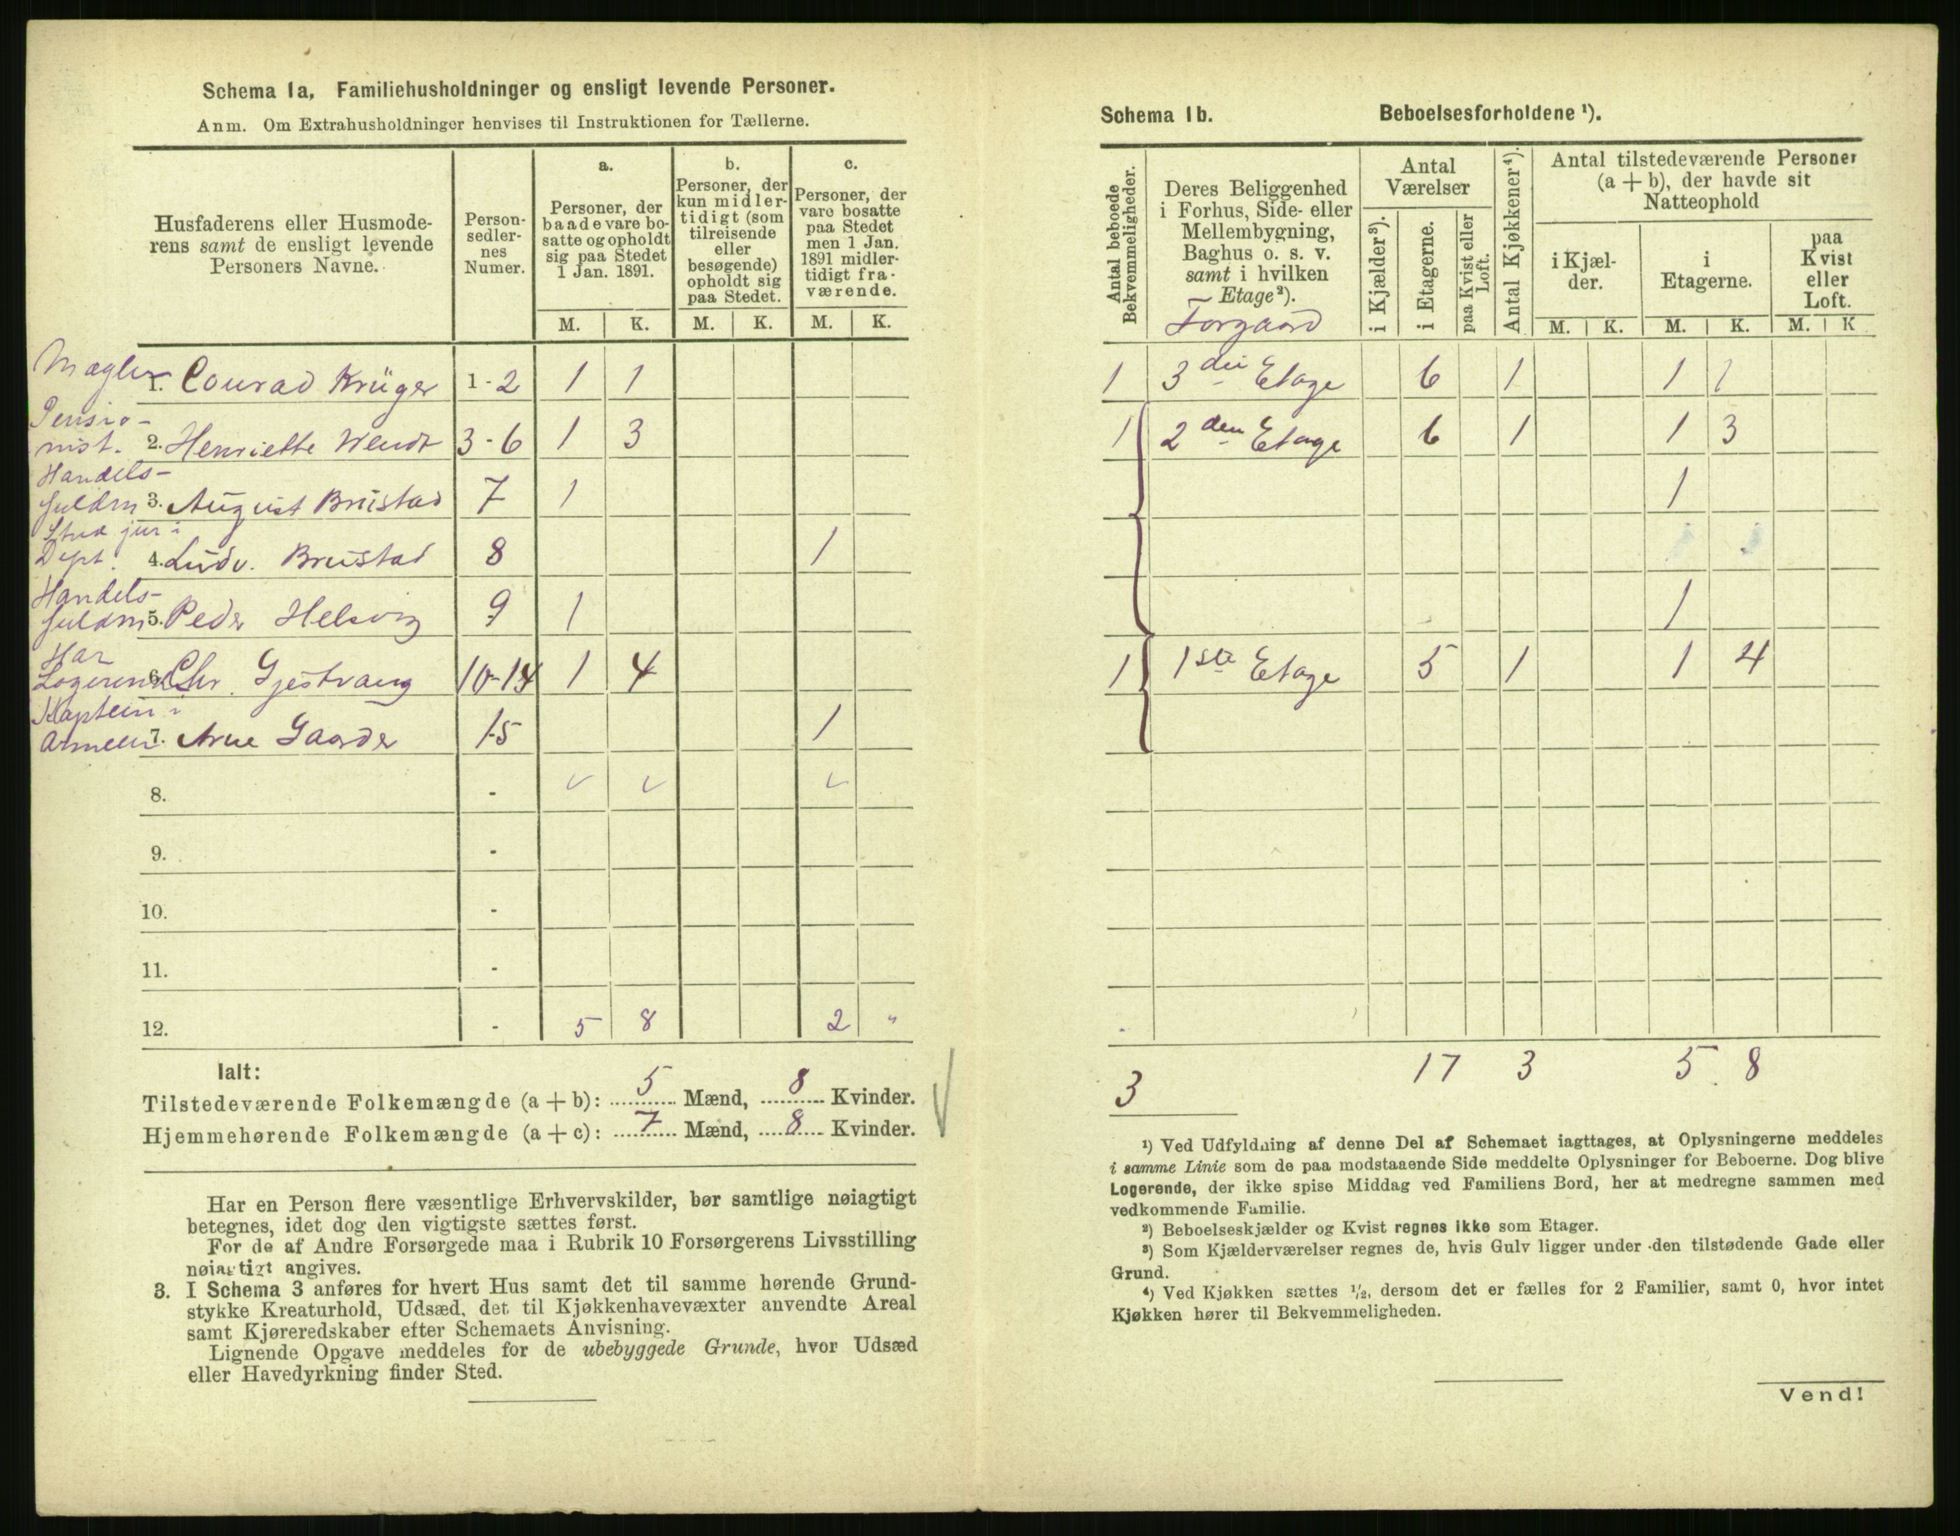 Schema 1a, Familiehusholdninger og ensligt levende Personer.
Anm. Om Extrahusholdninger henvises til Instruktionen for Tællerne.
Husfaderens eller Husmode-
rens samt de ensligt levende
Personers Navne.
Person-
sedler-
nes
Numer.
a.
Personer, der
baade vare bo-
satte og opholdt
sig paa Stedet
1 Jan. 1891.
M. K.
b.
Personer, der
kun midler-
tidigt (som
tilreisende
eller
besøgende)
opholdt sig
paa Stedet.
M. K.
c.
Personer, der
vare bosatte
paa Stedet
men 1 Jan.
1891 midler-
tidigt fra-
værende.
M. K.
Mægler
1. Conrad Krüger 1-2 1 1
Pensio-
nist. 2. Henriette Wendt 3-6 1 3
Handels-
fuldm 3. August Brustad 7 1
Stud jur i
Dept. 4. Ludv. Brustad 8 1
Handels-
fuldm 5. Peder Helsvig 9 1
Har
Logerende 6. Chr. Gjestvang 10-14 1 4
Kaptein i
Armeen 7. Arne Gaarder 15 1
8. -
9. -
10. -
11. -
12. - 5 8 2 "
Ialt:
Tilstedeværende Folkemængde (a + b): 5 Mænd, 8 Kvinder.
Hjemmehørende Folkemængde (a + c): 7 Mænd, 8 Kvinder.
Har en Person flere væsentlige Erhvervskilder, bør samtlige nøiagtigt
betegnes, idet dog den vigtigste sættes først.
For de af Andre Forsørgede maa i Rubrik 10 Forsørgerens Livsstilling
nøiagtigt angives.
3. I Schema 3 anføres for hvert Hus samt det til samme hørende Grund-
stykke Kreaturhold, Udsæd, det til Kjøkkenhavevæxter anvendte Areal
samt Kjøreredskaber efter Schemaets Anvisning.
Lignende Opgave meddeles for de ubebyggede Grunde, hvor Udsæd
eller Havedyrkning finder Sted.
Schema 1b. Beboelsesforholdene ¹).
Antal beboede
Bekvemmeligheder.
Deres Beliggenhed
i Forhus, Side- eller
Mellembygning,
Baghus o. s. v.
samt i hvilken
Etage²).
Forgaard
Antal
Værelser
i Kjælder³).
i Etagerne.
paa Kvist eller
Loft.
Antal Kjøkkener⁴).
Antal tilstedeværende Personer
(a + b), der havde sit
Natteophold
i Kjæl-
der.
M. K.
i
Etagerne.
M. K.
paa
Kvist
eller
Loft.
M. K
1 3die Etage 6 1 1 1
1 2den Etage 6 1 1 3
1
1
1 1ste Etage 5 1 1 4
3 17 3 5 8
¹) Ved Udfyldning af denne Del af Schemaet iagttages, at Oplysningerne meddeles
i samme Linie som de paa modstaaende Side meddelte Oplysninger for Beboerne. Dog blive
Logerende, der ikke spise Middag ved Familiens Bord, her at medregne sammen med
vedkommende Familie.
²) Beboelseskjælder og Kvist regnes ikke som Etager.
³) Som Kjælderværelser regnes de, hvis Gulv ligger under den tilstødende Gade eller
Grund.
⁴) Ved Kjøkken sættes ½, dersom det er fælles for 2 Familier, samt 0, hvor intet
Kjøkken hører til Bekvemmeligheden.
Vend!